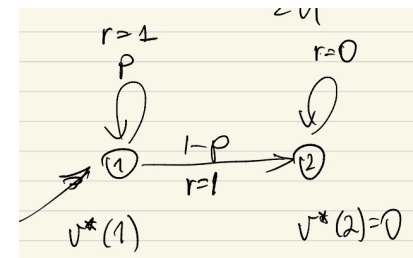 r=1
r=0
p
1-p
1
2
r=1
v*(1)
v*(2)=0